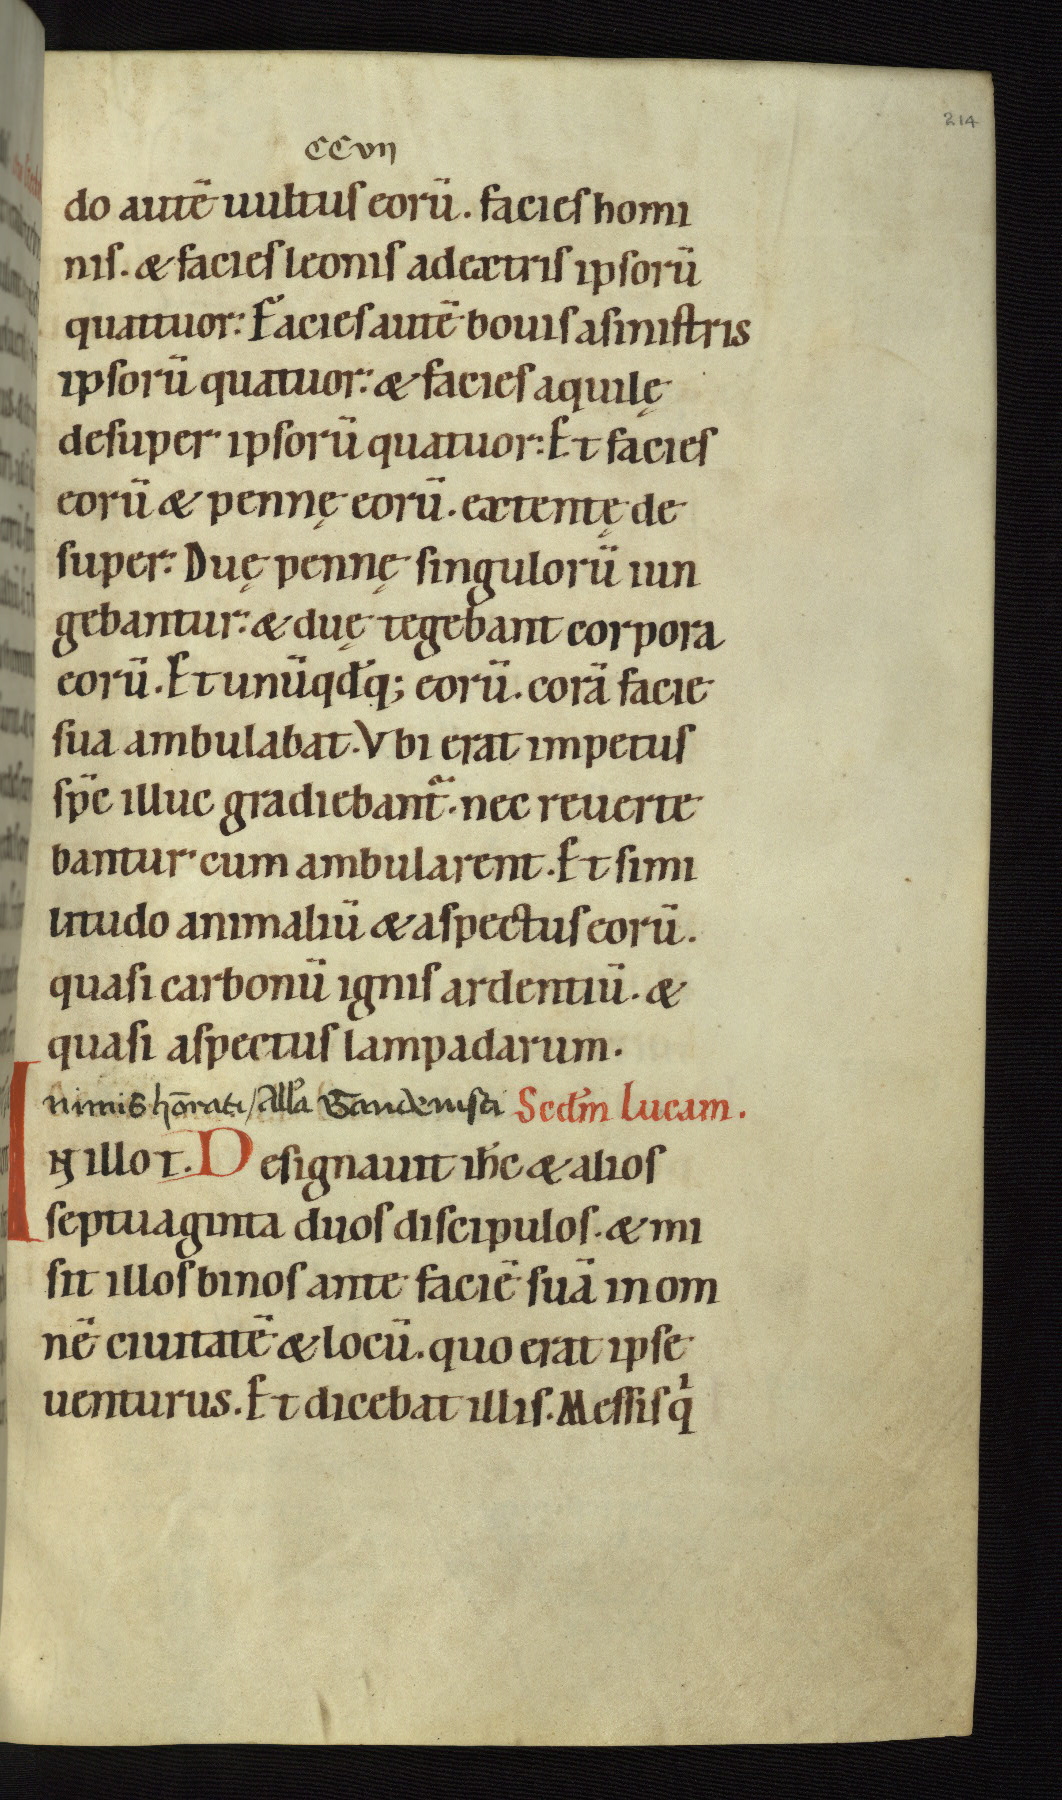 214
CCVII
do autē uultus eorū. facies homi
nis. & facies leonis adextris ipsorū
quattuor: Facies autē bouis asinistris
ipsorū quatuor: & facies aquilę
desuper ipsorū quatuor: Et facies
eorū & pennę eorū. extentę de
super: Duę pennę singulorū iun
gebantur: & duę tegebant corpora
eorū. Et unūqđq; eorū. corā facie
sua ambulabat. Vbi erat impetus
sp̄c illuc gradiebant᷑. nec reuerte
bantur cum ambularent. Et simi
litudo animaliū & aspectus eorū.
quasi carbonū ignis ardentiū. &
quasi aspectus lampadarum.
nimis hōrati / All'a Gaudeuisti Scđm Lucam.
IN illo T. Designauit ihc̄ & alios
septuaginta duos discipulos. & mi
sit illos binos ante faciē suā in om
nē ciuitatē & locū. quo erat ipse
uenturus. Et dicebat illis. Messis qͥ